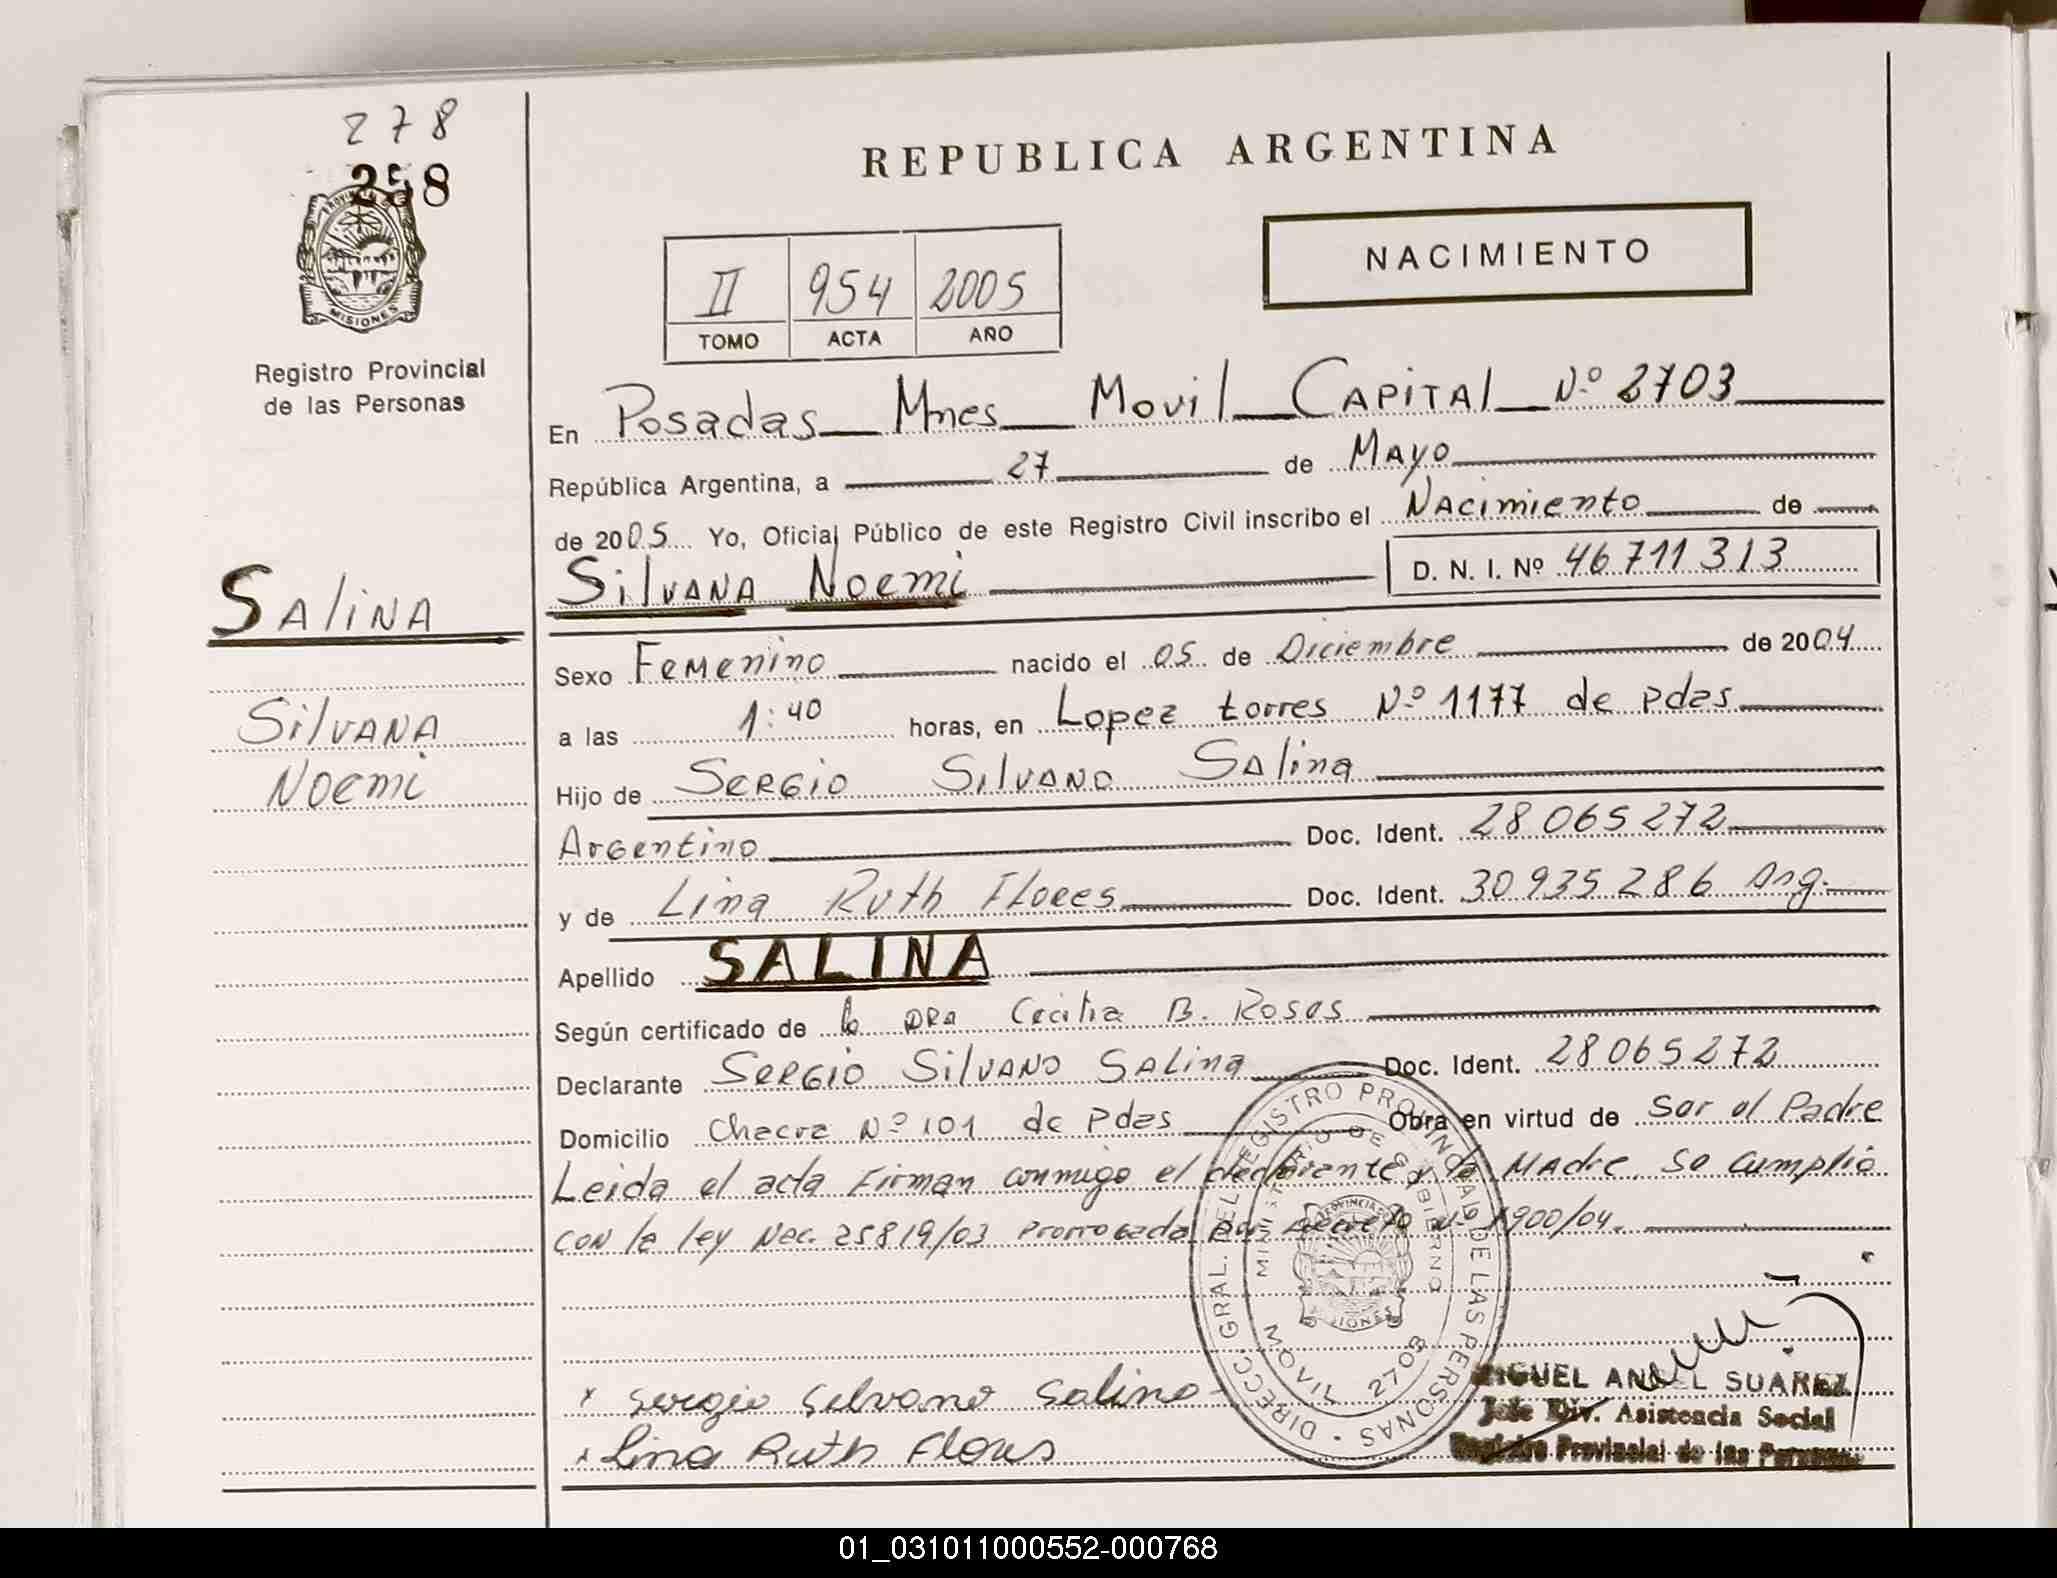 278
258
MISIONES
Registro Provincial
de las Personas
SALINA
SilVANA
Noemi
REPUBLICA ARGENTINA
NACIMIENTO
II 954 2005
TOMO ACTA AÑO
En Posadas Mnes Movil CAPITAl Nº 2703
República Argentina, a 27 de MAyo
de 2005 Yo, Oficial Público de este Registro Civil inscribo el NAcimiento de
SilVANA Noemi D. N. I. Nº 46711313
Sexo Femenino nacido el 05 de Diciembre de 2004
a las 1:40 horas, en Lopez torres Nº 1177 de pdas
Hijo de SERGIO SILVANO SAlina
Argentino Doc. Ident. 28065272
y de Lina Ruth Flores Doc. Ident. 30935286 Arg.
Apellido SALINA
Según certificado de la DRA Cecilia B. Rosas
Declarante SERGIO SilVANO SALina Doc. Ident. 28065272
Domicilio Chacra Nº 101 de pdas Obra en virtud de Ser el Padre
Leida el acta Firman conmigo el declarante y la MAdre. Se cumplió
CON la ley Nac. 25819/03 Prorrogada por decreto Nº 1900/04.
DIRECC. GRAL. DEL REGISTRO PROVINCIAL DE LAS PERSONAS
MINISTERIO DE GOBIERNO
MOVIL 2703
x Sergio Silvano Salina
x Lina Ruth Flores
MIGUEL ANGEL SUAREZ
Jefe Div. Asistencia Social
Registro Provincial de las Personas
01_031011000552-000768